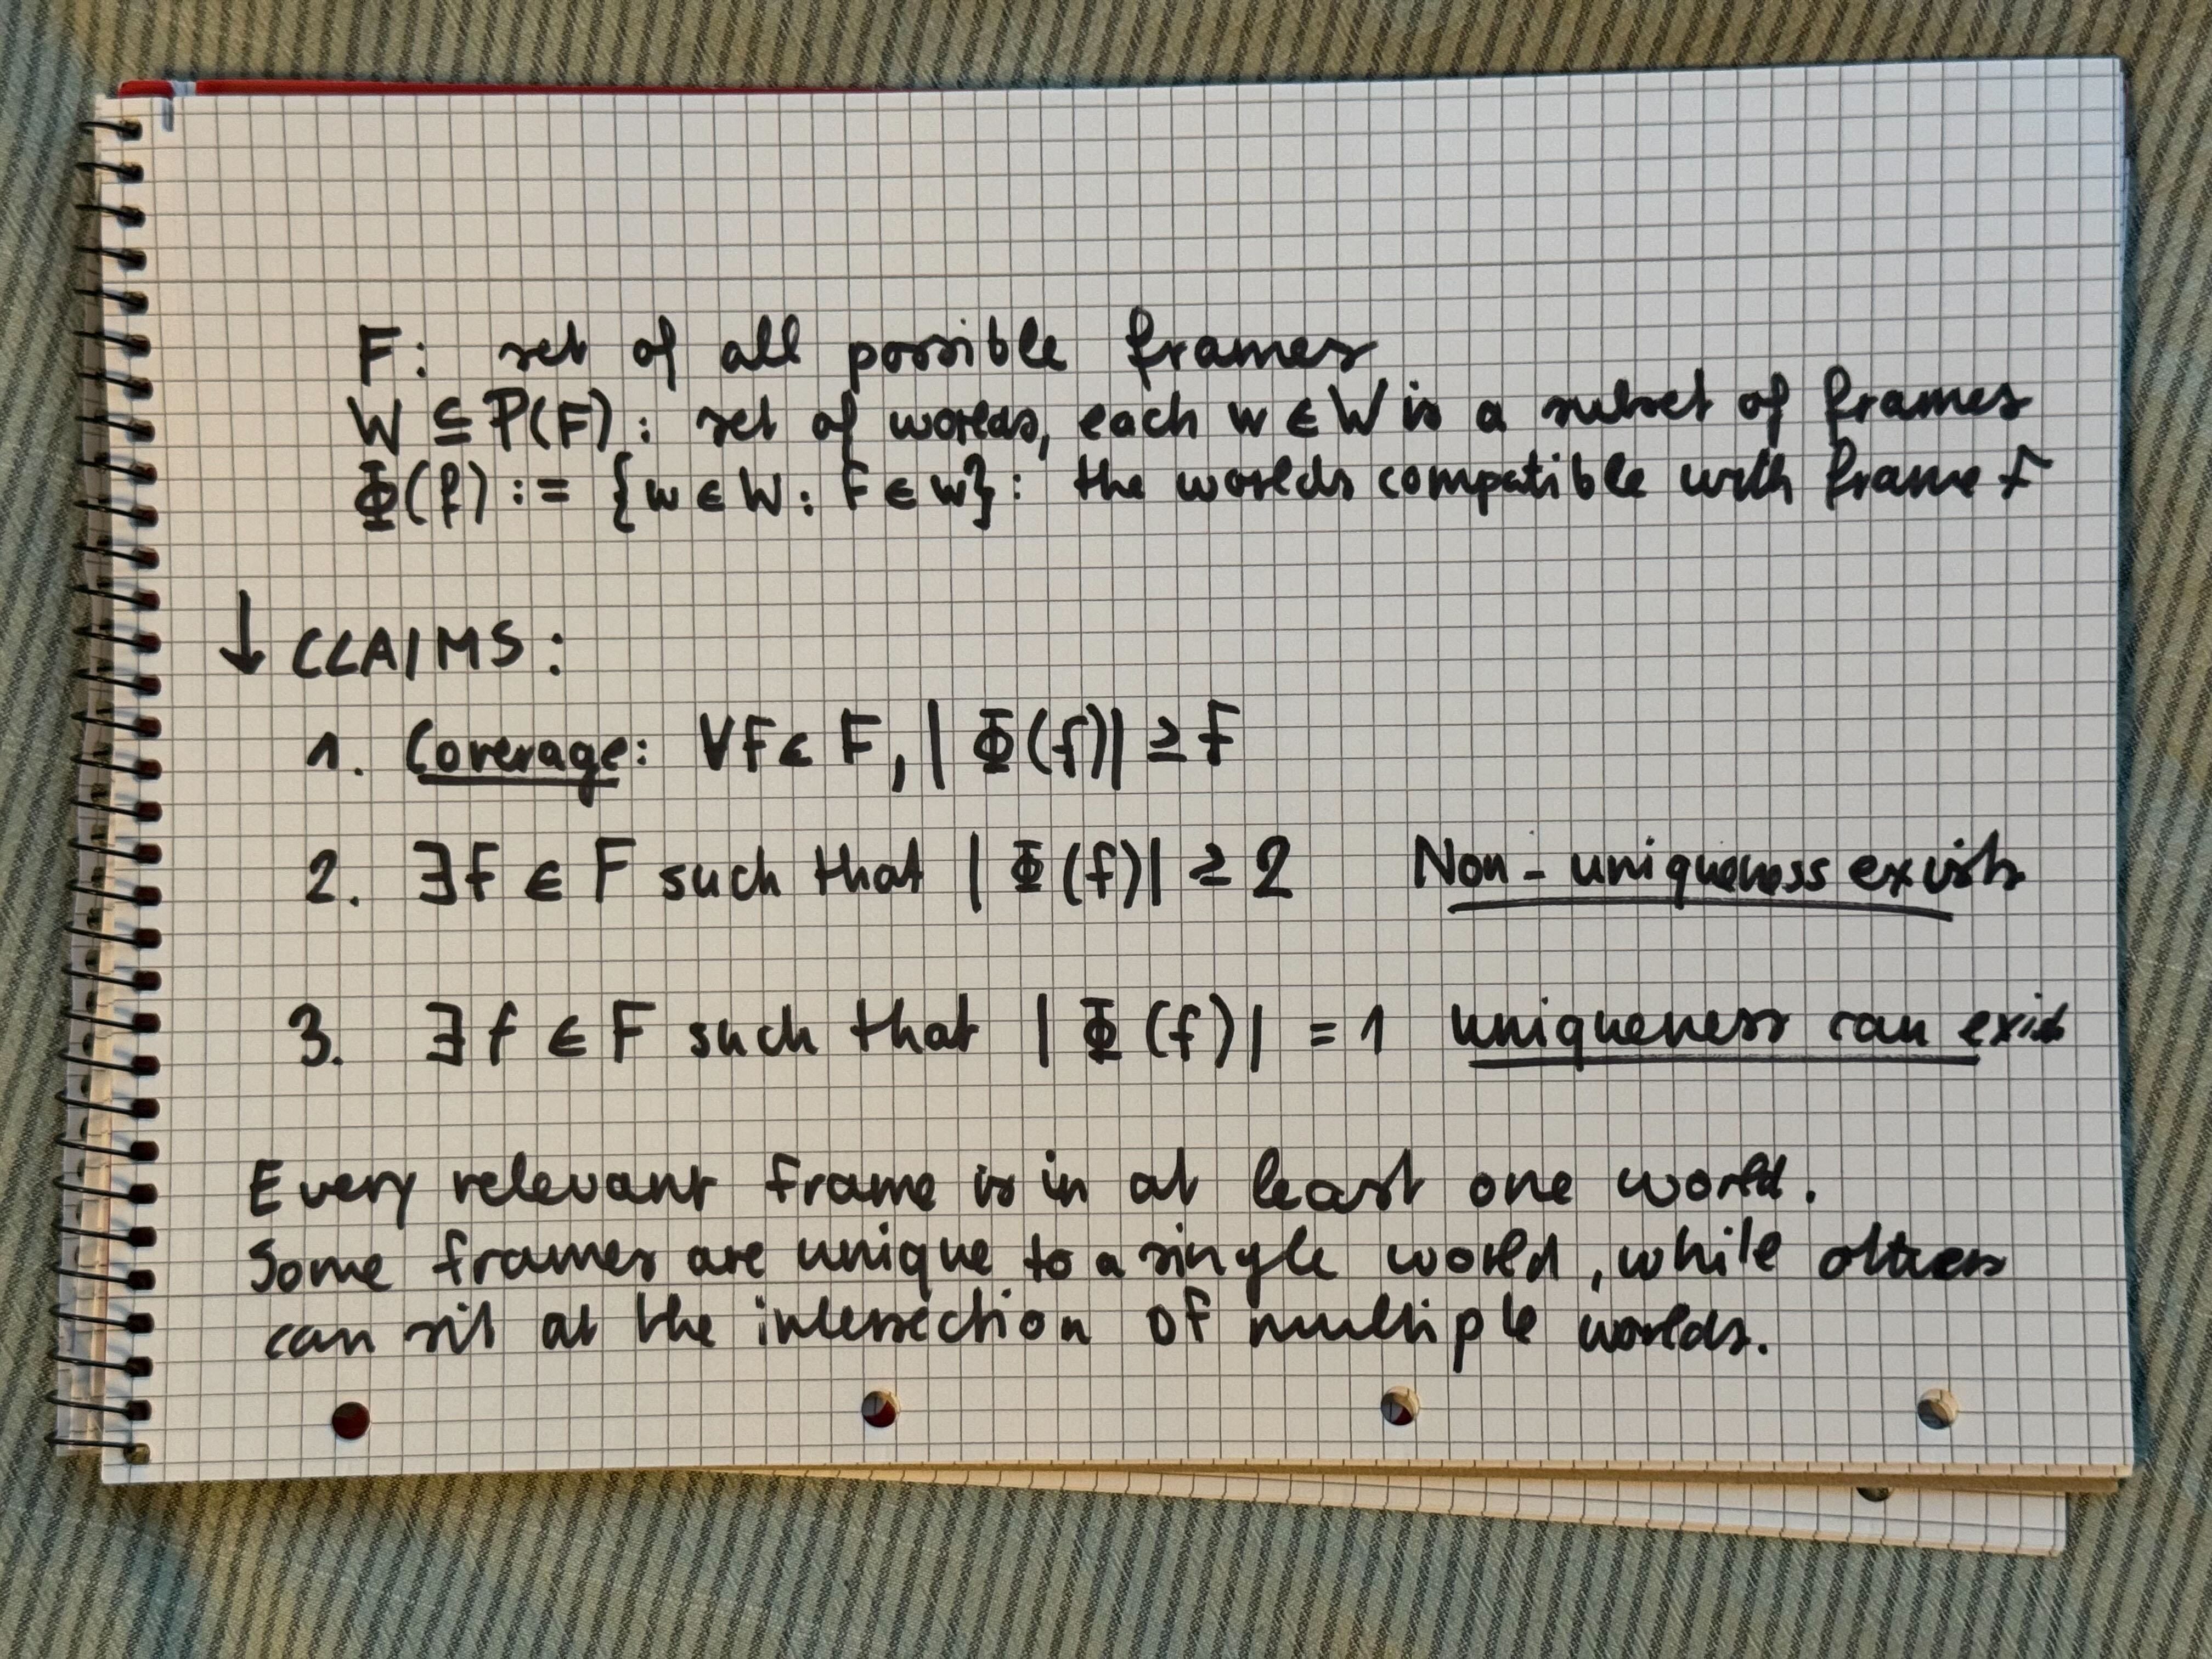 F: set of all possible frames
W ⊆ P(F): set of worlds, each w ∈ W is a subset of frames
Φ(f) := {w ∈ W: f ∈ w}: the worlds compatible with frame f
↓ CLAIMS:
1. Coverage: ∀f ∈ F, |Φ(f)| ≥ f
2. ∃f ∈ F such that |Φ(f)| ≥ 2 Non-uniqueness exists
3. ∃f ∈ F such that |Φ(f)| = 1 uniqueness can exist
Every relevant frame is in at least one world.
Some frames are unique to a single world, while others
can sit at the intersection of multiple worlds.